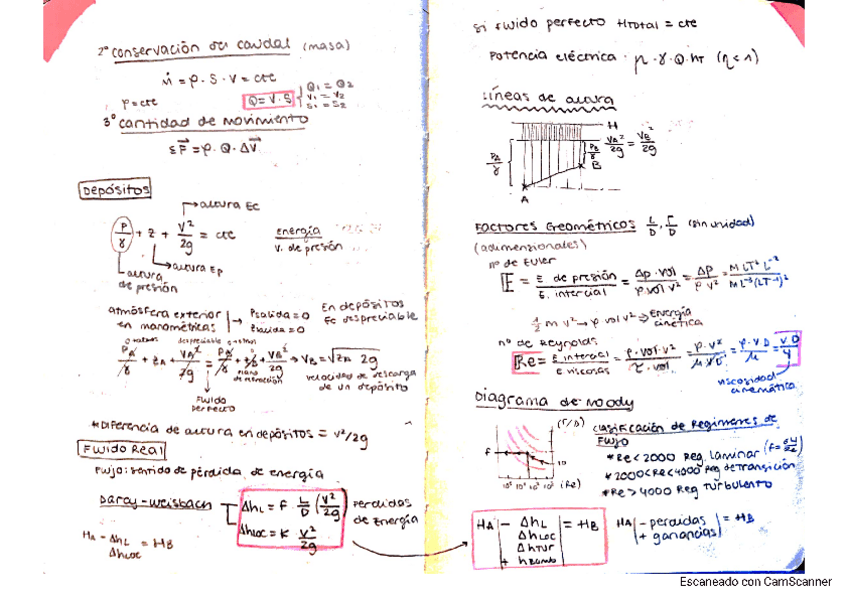 2º conservación del caudal (masa)
ṁ = ρ · S · V = cte
ρ = cte
Q = V · S
Q1 = Q2
V1 = V2
S1 = S2
3º cantidad de movimiento
ΣF = ρ · Q · ΔV
Depósitos
altura Ec
P/γ + z + V²/2g = cte
energía
v. de presión
altura Ep
altura
de presión
atmósfera exterior
en manométricas
Psalida = 0
Zsalida = 0
En depósitos
Ec despreciable
PA/γ + ZA + VA²/2g = PB/γ + ZB + VB²/2g → VB = √ZA 2g
velocidad de descarga
de un depósito
Fluido
perfecto
* Diferencia de altura en depósitos = V²/2g
Fluido Real
Flujo: sentido de pérdida de energía
Darcy-Weisbach
ΔhL = F · L/D (V²/2g)
Δhloc = K · V²/2g
perdidas
de Energía
HA - ΔhL = HB
Δhloc
si fluido perfecto Htotal = cte
Potencia eléctrica: μ · γ · Q · HT (η < 1)
Líneas de altura
H
PA/γ
PB/γ
VA²/2g = VB²/2g
B
A
Factores Geométricos L/D, ε/D (sin unidad)
(adimensionales)
nº de Euler
E = E de presión / E. inercial = Δp · vol / ρ vol v² = Δp / ρ v² = M LT² L⁻² / M L⁻³ (LT⁻¹)²
½ m v² → ρ vol v² → Energía
cinética
nº de Reynolds
Re = E inercial / E viscosas = ρ · vol · v² / τ · vol = ρ · v² / μ v/D = ρ · v D / μ = V D / ν
viscosidad
cinemática
Diagrama de Moody
(ε/D)
F
(Re)
Clasificación de Regímenes de
Flujo
* Re < 2000 Reg. laminar
* 2000 < Re < 4000 Reg de transición
* Re > 4000 Reg Turbulento
HA - ΔhL = HB
Δhloc
Δhtur
+ hbomba
HA - perdidas = HB
+ ganancias
Escaneado con CamScanner